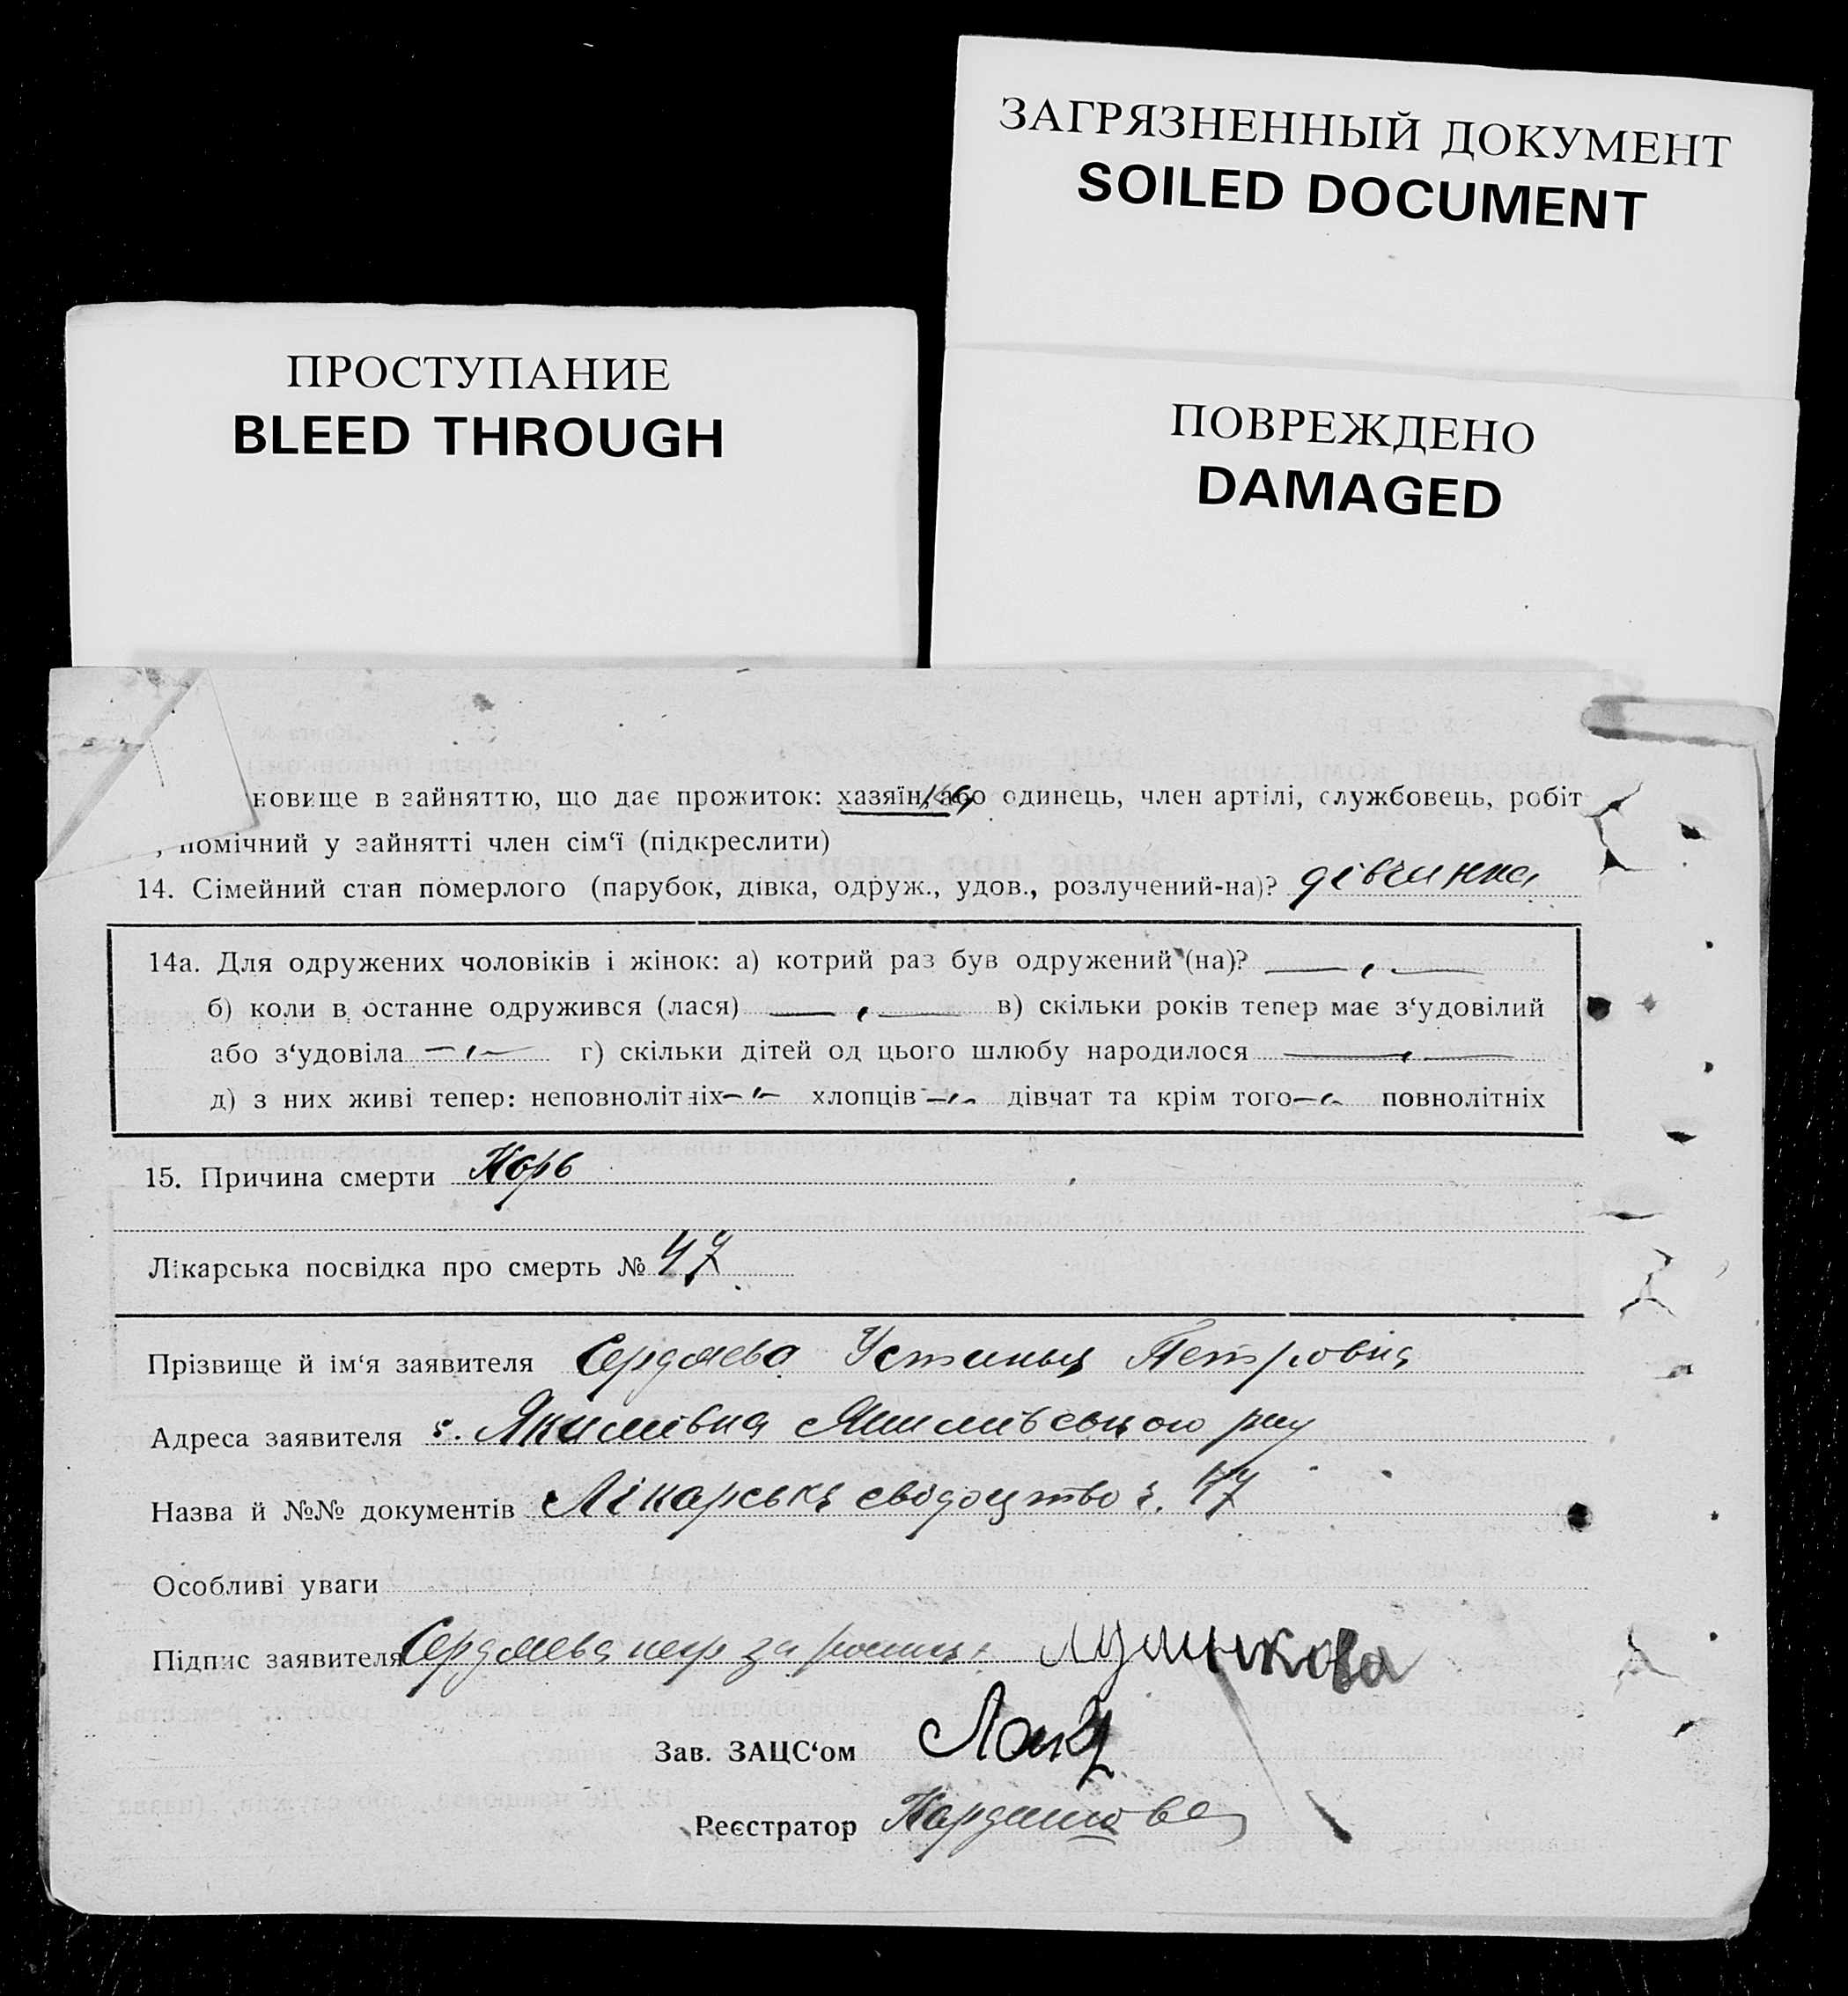 ЗАГРЯЗНЕННЫЙ ДОКУМЕНТ
SOILED DOCUMENT
ПРОСТУПАНИЕ
BLEED THROUGH
ПОВРЕЖДЕНО
DAMAGED
новище в зайняттю, що дає прожиток: хазяїн, або одинець, член артілі, службовець, робіт
, помічний у зайнятті член сім‘ї (підкреслити)
14. Сімейний стан померлого (парубок, дівка, одруж., удов., розлучений-на)? дівчинка
14а. Для одружених чоловіків і жінок: а) котрий раз був одружений (на)? — " —
б) коли в останне одружився (лася) — " — в) скільки років тепер має з‘удовілий
або з‘удовіла — " — г) скільки дітей од цього шлюбу народилося — " —
д) з них живі тепер: неповнолітніх — " — хлопців — " — дівчат та крім того — " — повнолітніх
15. Причина смерти Корь
Лікарська посвідка про смерть № 47
Прізвище й ім‘я заявителя Устинья Петровна
Адреса заявителя с. Якимівка Якимівського рну
Назва й №№ документів Лікарське свідоцтво ч. 47
Особливі уваги
Підпис заявителя
Зав. ЗАЦС‘ом
Реєстратор